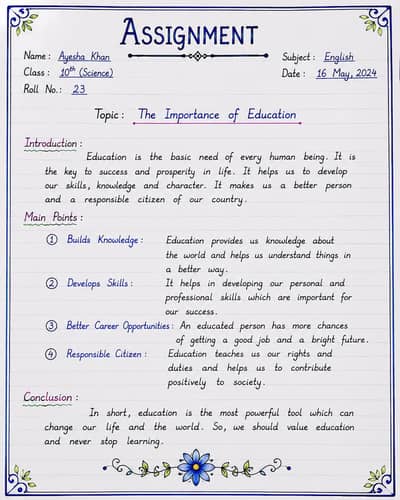 ASSIGNMENT
Name : Ayesha Khan
Subject : English
Class : 10th (Science)
Date : 16 May, 2024
Roll No. : 23
Topic : The Importance of Education
Introduction :
Education is the basic need of every human being. It is
the key to success and prosperity in life. It helps us to develop
our skills, knowledge and character. It makes us a better person
and a responsible citizen of our country.
Main Points :
1 Builds Knowledge : Education provides us knowledge about
the world and helps us understand things in
a better way.
2 Develops Skills : It helps in developing our personal and
professional skills which are important for
our success.
3 Better Career Opportunities : An educated person has more chances
of getting a good job and a bright future.
4 Responsible Citizen : Education teaches us our rights and
duties and helps us to contribute
positively to society.
Conclusion :
In short, education is the most powerful tool which can
change our life and the world. So, we should value education
and never stop learning.